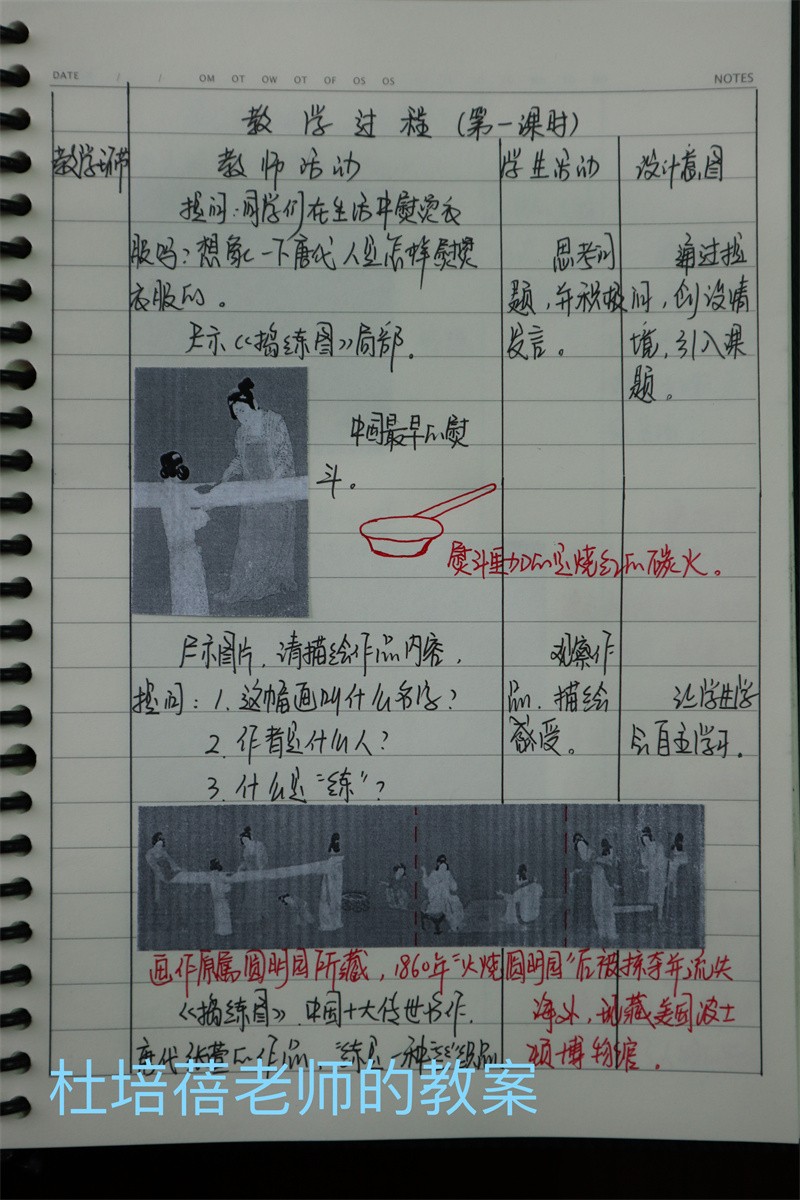 DATE / / OM OT OW OT OF OS OS NOTES
教 学 过 程 (第一课时)
教学环节 教师活动 学生活动 设计意图
提问:同学们在生活中熨烫衣
服吗?想象一下唐代人是怎样熨烫
衣服的。
思考问
题,并积极
发言。
通过提
问,创设情
境,引入课
题。
展示《捣练图》局部。
中国最早的熨
斗。
熨斗里加的是烧红的碳火。
展示图片,请描绘作品内容,
提问:1.这幅画叫什么名字?
2.作者是什么人?
3.什么是“练”?
观察作
品,描绘
感受。
让学生学
会自主学习。
画作原属圆明园所藏,1860年“火烧圆明园”后被掠夺并流失
海外,现藏美国波士
顿博物馆。
《捣练图》,中国十大传世名作,
唐代张萱的作品,“练”是一种丝织品
杜培蓓老师的教案